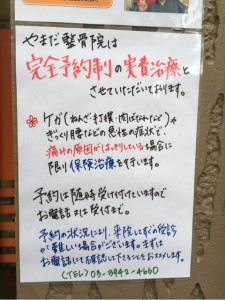 やまだ整骨院は
完全予約制の実費治療と
させていただいております。
❀ ケガ(ねんざ・打撲・肉ばなれなど)や
ぎっくり腰などの急性の症状で、
痛みの原因がはっきりしている場合に
限り保険治療を行います。
予約は随時受け付けていますので
お電話又は受付まで。
予約の状況により、来院してすぐの受診
が難しい場合がございます。まずは
お電話にて確認して下さることをおススメします。
(TEL) 03-3942-4660